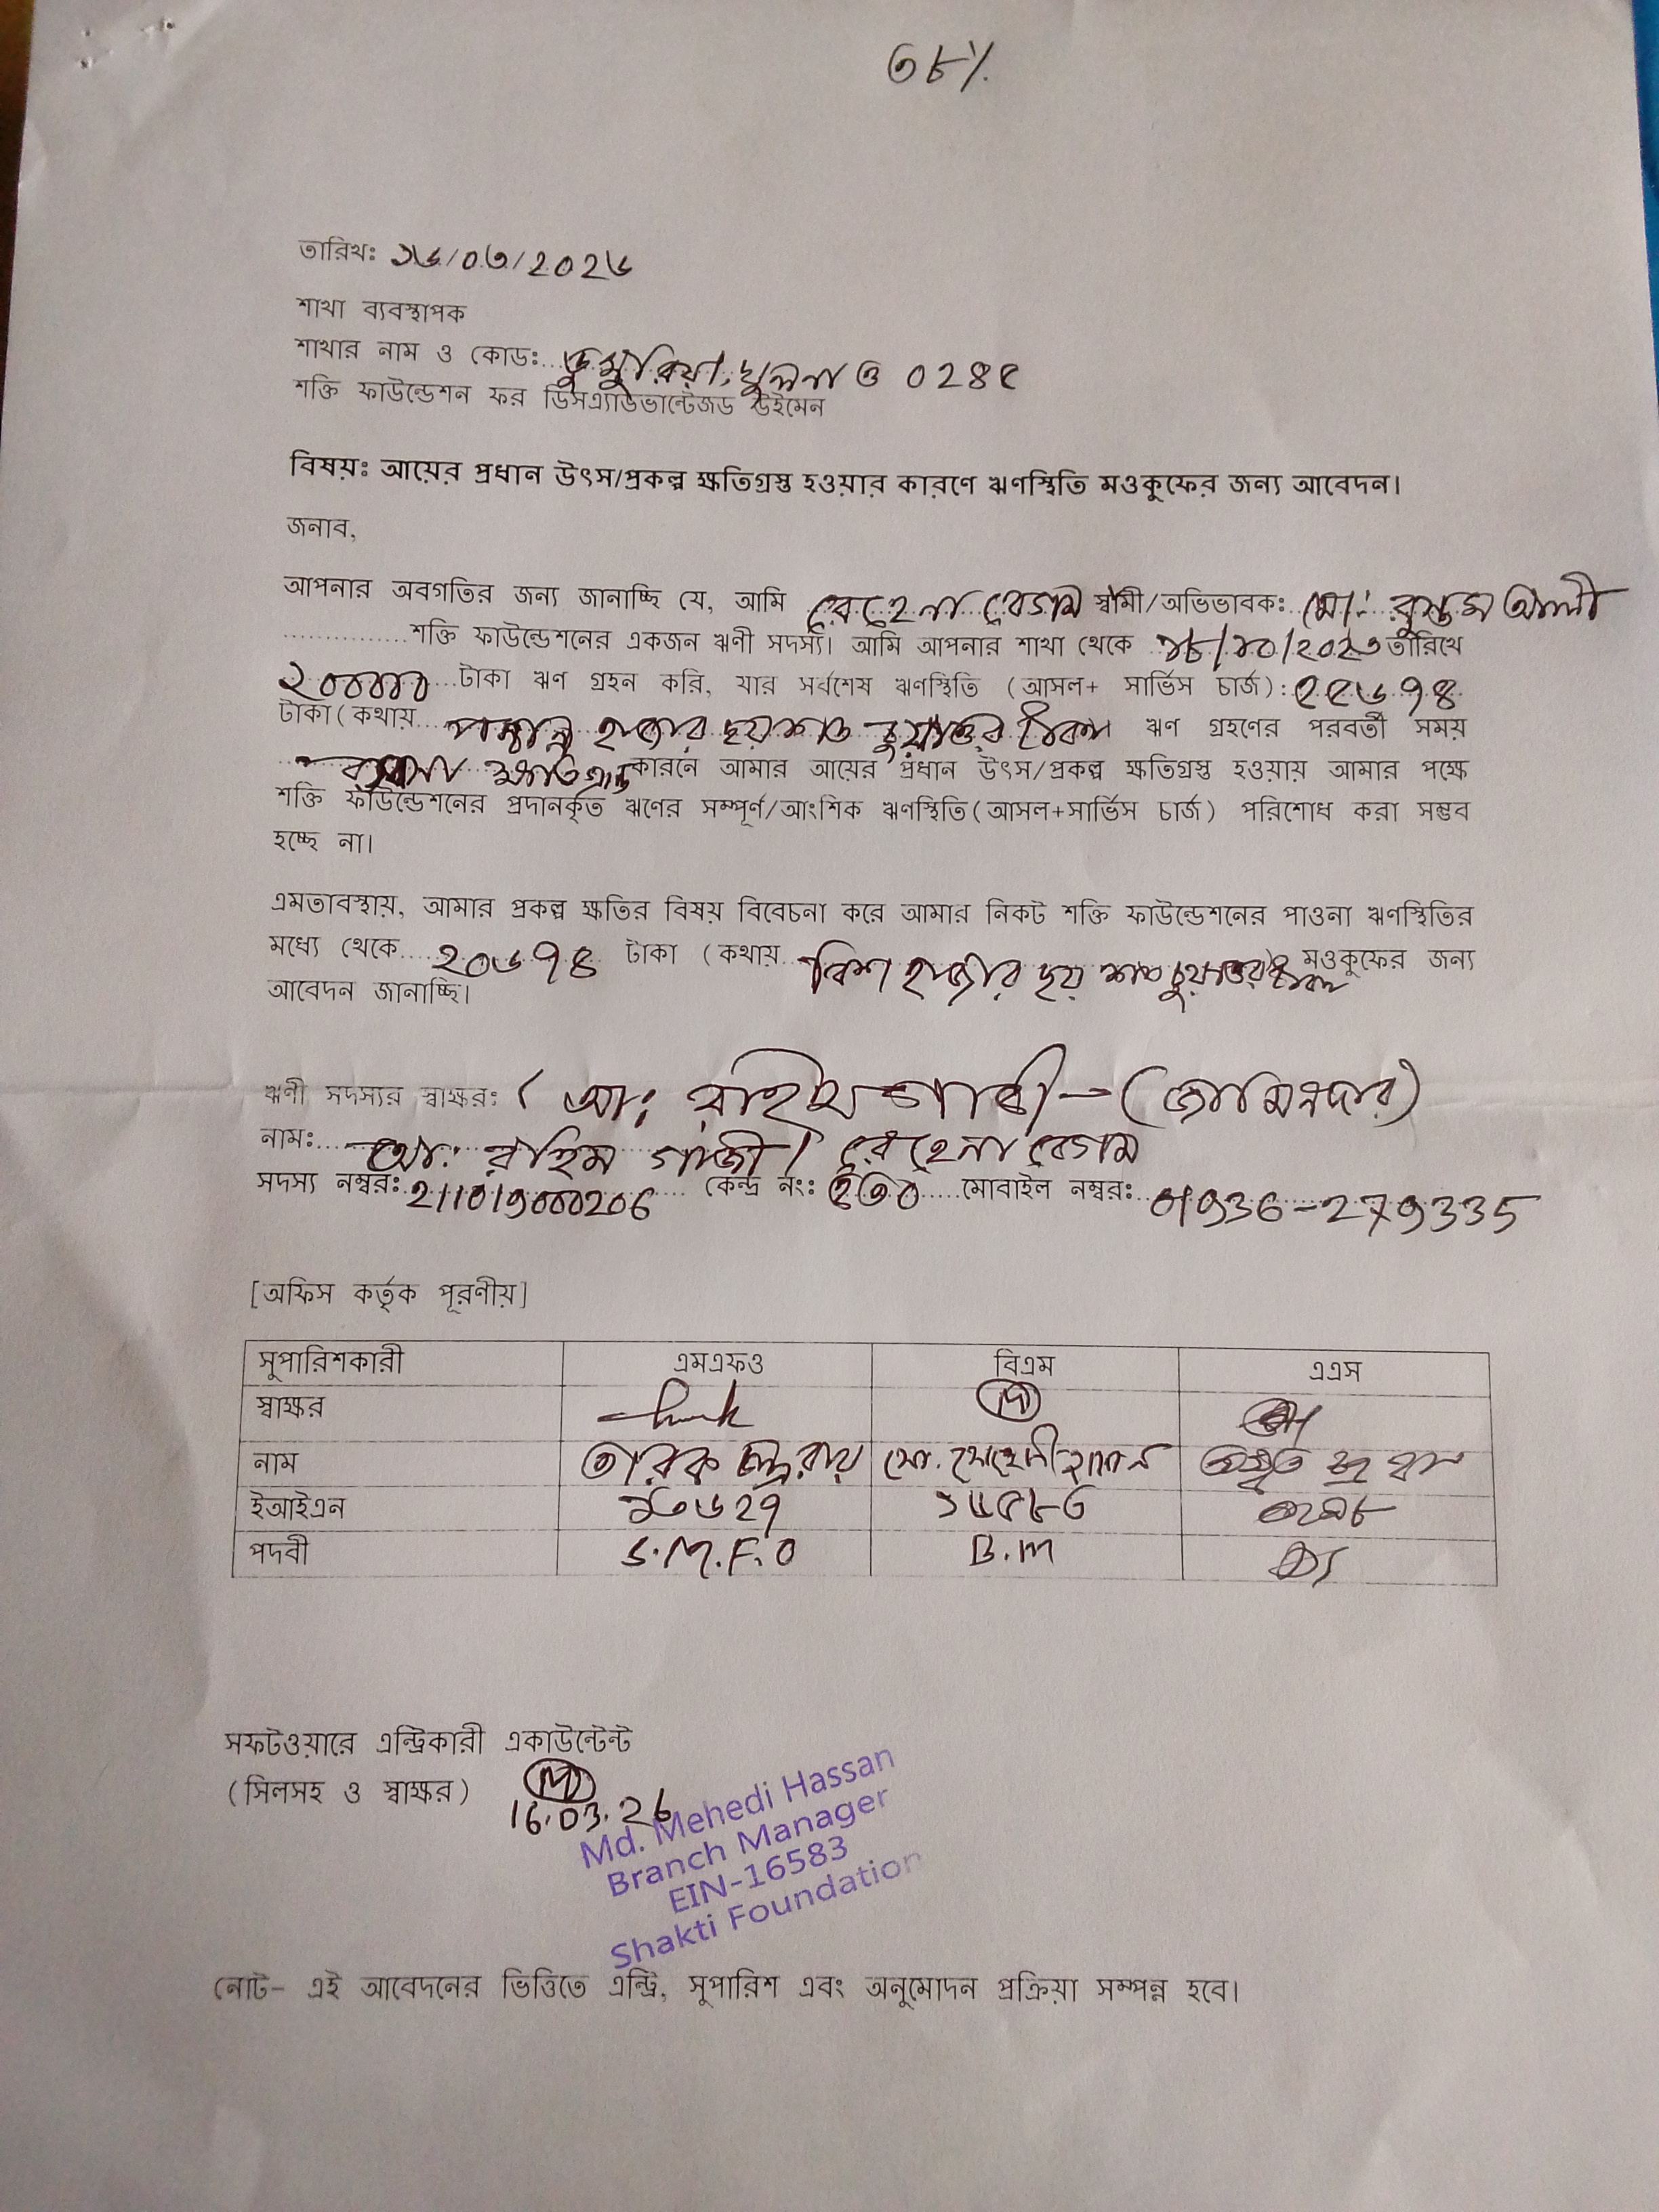 ৩৮%
তারিখঃ ১৬/০৩/২০২৬
শাখা ব্যবস্থাপক
শাখার নাম ও কোডঃ...ডুমুরিয়া, খুলনা ও ০২৪৫
শক্তি ফাউন্ডেশন ফর ডিসএ্যাডভান্টেজড উইমেন
বিষয়ঃ আয়ের প্রধান উৎস/প্রকল্প ক্ষতিগ্রস্ত হওয়ার কারণে ঋণস্থিতি মওকুফের জন্য আবেদন।
জনাব,
আপনার অবগতির জন্য জানাচ্ছি যে, আমি রেহেনা বেগম স্বামী/অভিভাবক: মো: রুস্তম আলী
...............শক্তি ফাউন্ডেশনের একজন ঋণী সদস্য। আমি আপনার শাখা থেকে ১৮/১০/২০২৩ তারিখে
২০০০০০ ...টাকা ঋণ গ্রহন করি, যার সর্বশেষ ঋণস্থিতি (আসল+ সার্ভিস চার্জ): ৫৫৬৭৪
টাকা (কথায়... পঞ্চান্ন হাজার ছয়শত চুয়াত্তর টাকা ঋণ গ্রহণের পরবর্তী সময়
ব্যবসা ক্ষতিগ্রস্ত কারনে আমার আয়ের প্রধান উৎস/প্রকল্প ক্ষতিগ্রস্ত হওয়ায় আমার পক্ষে
শক্তি ফাউন্ডেশনের প্রদানকৃত ঋণের সম্পূর্ণ/আংশিক ঋণস্থিতি(আসল+সার্ভিস চার্জ) পরিশোধ করা সম্ভব
হচ্ছে না।
এমতাবস্থায়, আমার প্রকল্প ক্ষতির বিষয় বিবেচনা করে আমার নিকট শক্তি ফাউন্ডেশনের পাওনা ঋণস্থিতির
মধ্যে থেকে....২০৬৭৪ টাকা (কথায়...বিশ হাজার ছয় শত চুয়াত্তর টাকা) মওকুফের জন্য
আবেদন জানাচ্ছি।
ঋণী সদস্যর স্বাক্ষর: (আ: রাহিম গাজী - (জামিনদার)
নামঃ... আ: রহিম গাজী / রেহেনা বেগম
সদস্য নম্বরঃ 211019000206 কেন্দ্র নং: ৫৩০ ..... মোবাইল নম্বরঃ 01936-279335
[অফিস কর্তৃক পূরণীয়]
সুপারিশকারী এমএফও বিএম এএস
স্বাক্ষর
নাম তারক চন্দ্র রায় মো. মেহেদী হাসান
ইআইএন ১৬৫৮৩
পদবী S.M.F.O B.M
সফটওয়ারে এন্ট্রিকারী একাউন্টেন্ট
(সিলসহ ও স্বাক্ষর)
16.03.26
Md. Mehedi Hassan
Branch Manager
EIN-16583
Shakti Foundation
নোট- এই আবেদনের ভিত্তিতে এন্ট্রি, সুপারিশ এবং অনুমোদন প্রক্রিয়া সম্পন্ন হবে।